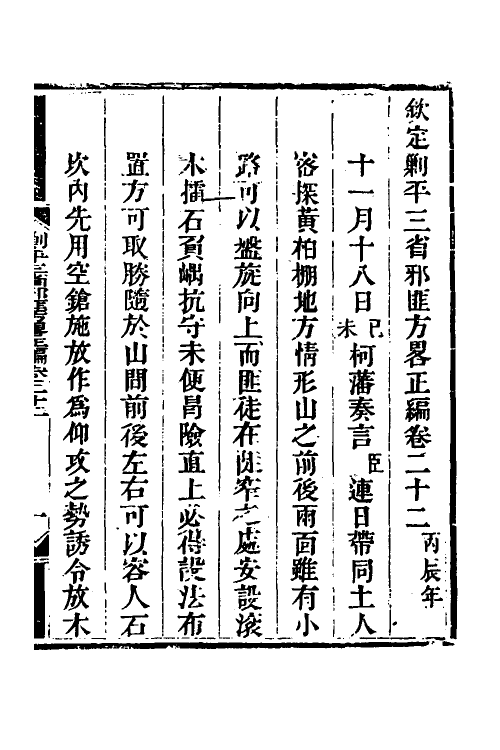 欽定剿平三省邪匪方畧正編卷二十二 丙辰年
十一月十八日己未柯藩奏言臣連日帶同土人
密探黃柏棚地方情形山之前後兩面雖有小
路可以盤旋向上而匪徒在陡窄之處安設滚
木擂石負嵎抗守未便冒險直上必得設法布
置方可取勝隨於山間前後左右可以容人石
坎內先用空鎗施放作爲仰攻之勢誘令放木